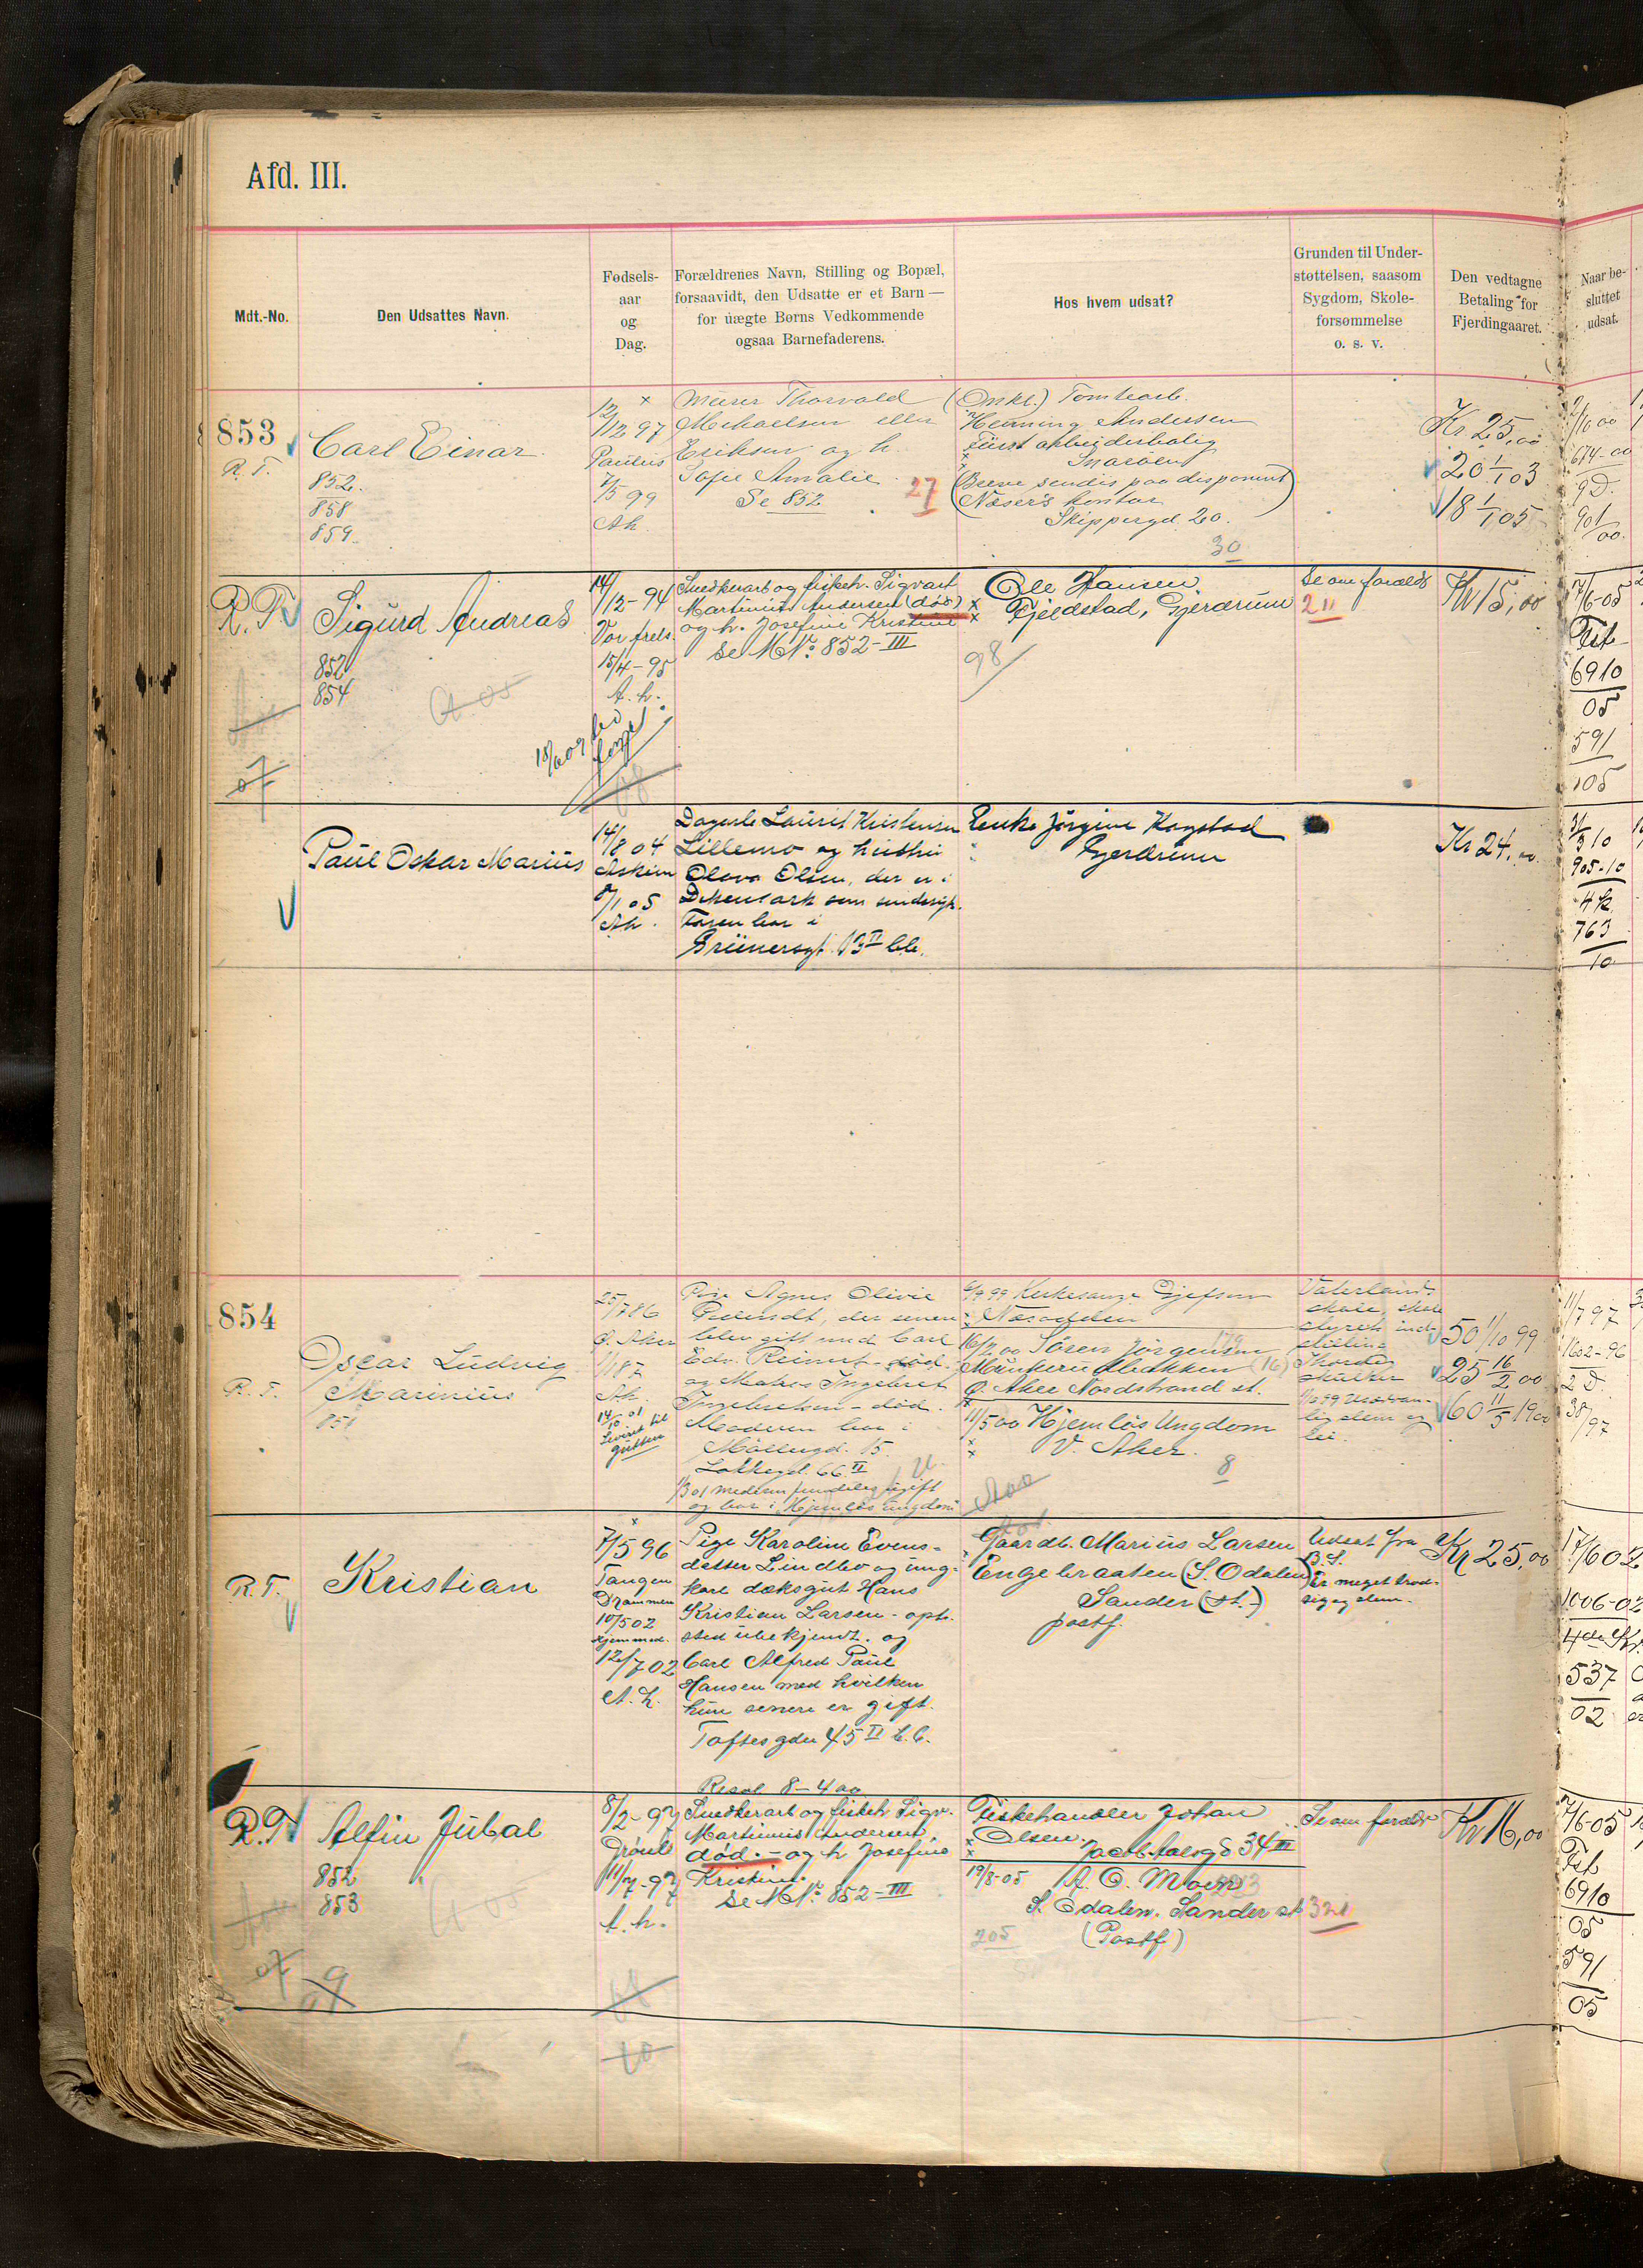 Afd. III.
Mdt.-No.
Den Udsattes Navn.
Fødsels-
aar
og
Dag.
Forældrenes Navn, Stilling og Bopæl,
forsaavidt, den Udsatte er et Barn —
for uægte Børns Vedkommende
ogsaa Barnefaderens.
Hos hvem udsat?
Grunden til Under-
støttelsen, saasom
Sygdom, Skole-
forsømmelse
o. s. v.
Den vedtagne
Betaling for
Fjerdingaaret.
Naar be-
sluttet
udsat.
853
R. T.
Carl Einar
852.
858
859.
12/12 97
Paulus
7/5 99
Ah.
Murer Thorvald
Mikaelsen eller
Eriksen og h.
Sofie Amalie
Se 852
27
(Onkl.) Tomtearb.
Henning Andersen
arbeiderbolig
Snarøen
(Breve sendes paa disponent
Næser's kontor
Skippergd. 20.
30
Kr 25,00
20 1/1 03
18 1/1 05
2/10 00
674-00
9 D.
901
00.
R. T.
Sigurd Andreas
852
854
07
14/12-94
Vor frels.
15/4-95
A. h.
Snedkerarb og fiskeh. Sigvart
Martinius Andersen (død)
og h. Josefine Kristine
Se M No 852-III
Ole Hansen
Fjeldstad, Gjerdrum
98
Se om foræld
211
Kr 15,00
17/6-05
Fst
6910
05
591
105
Paul Oskar Marius
14/8 04
Askim
8/1 05
Ah.
Dagarb. Laurits Kristensen
Lillemo og hustru
Olava Olsen, der er i
Dikemark som sindssyk.
Faren bor i
Grünersgt. 13 II
Enke Jørgine Kogstad
Gjerdrum
Kr 24,00
905-10
763
10
854
R. T.
Oscar Ludvig
Marinius
851
25/7 86
Ø. Aker
1/1 87
Ah.
14/10 01
leveret til
gutten
Pige Agnes Olivie
der senere
blev gift med Carl
Edv. Reinert - død.
og Matros Ingebret
Ingebretsen - død.
Moderen bor i
Møllergd. 15
Lakkegd. 66 II
og bor i Hjemløs ungdom
Nesodden
16/2 00 Søren Jørgensen
Bakken (16)
Ø. Aker Nordstrand st.
11/5 00 Hjemløs Ungdom
V. Aker.
8
Vaterlands
skole, skole
styrets ind-
stilling
50 1/10 99
25 16/2 00
60 11/5 1900
11/7 97
1602-96
2 D.
30/97
R. T.
Kristian
7/5 96
Tangen
Drammen
10/5 02
Hjemmed.
12/7 02
A. h.
Pige Karoline Evens-
datter Lindbo og ung-
karl dæksgut Hans
Kristian Larsen - oph.
sted ubekjendt. og
Carl Alfred Paul
Hansen med hvilken
hun senere er gift.
Toftes gden 45 II
Gaardb. Marius Larsen
Engebraaten (S. Odalen)
Sander (st.)
postf.
Udsat fra
B. S.
Er meget trod-
sig og slem.
Kr 25,00
17/6 02
1006-02
537
02
R. T.
Alfin Jubal
852
853
07
8/2-97
Grønl.
11/7-97
A. h.
Resol 8-4 00
Snedkerarb og fiskeh Sigv.
Martinius Andersen,
død. - og h Josefine
Kristine.
Se M No 852-III
Fiskehandler Johan
Olsen,
Jacob Aalsgd 34 III
19/8-05 A. O. Moen
S. Odalen. Sander st
(Postf)
205
321
Se om foræld
Kr 16,00
17/6-05
Fst
6910
05
591
05